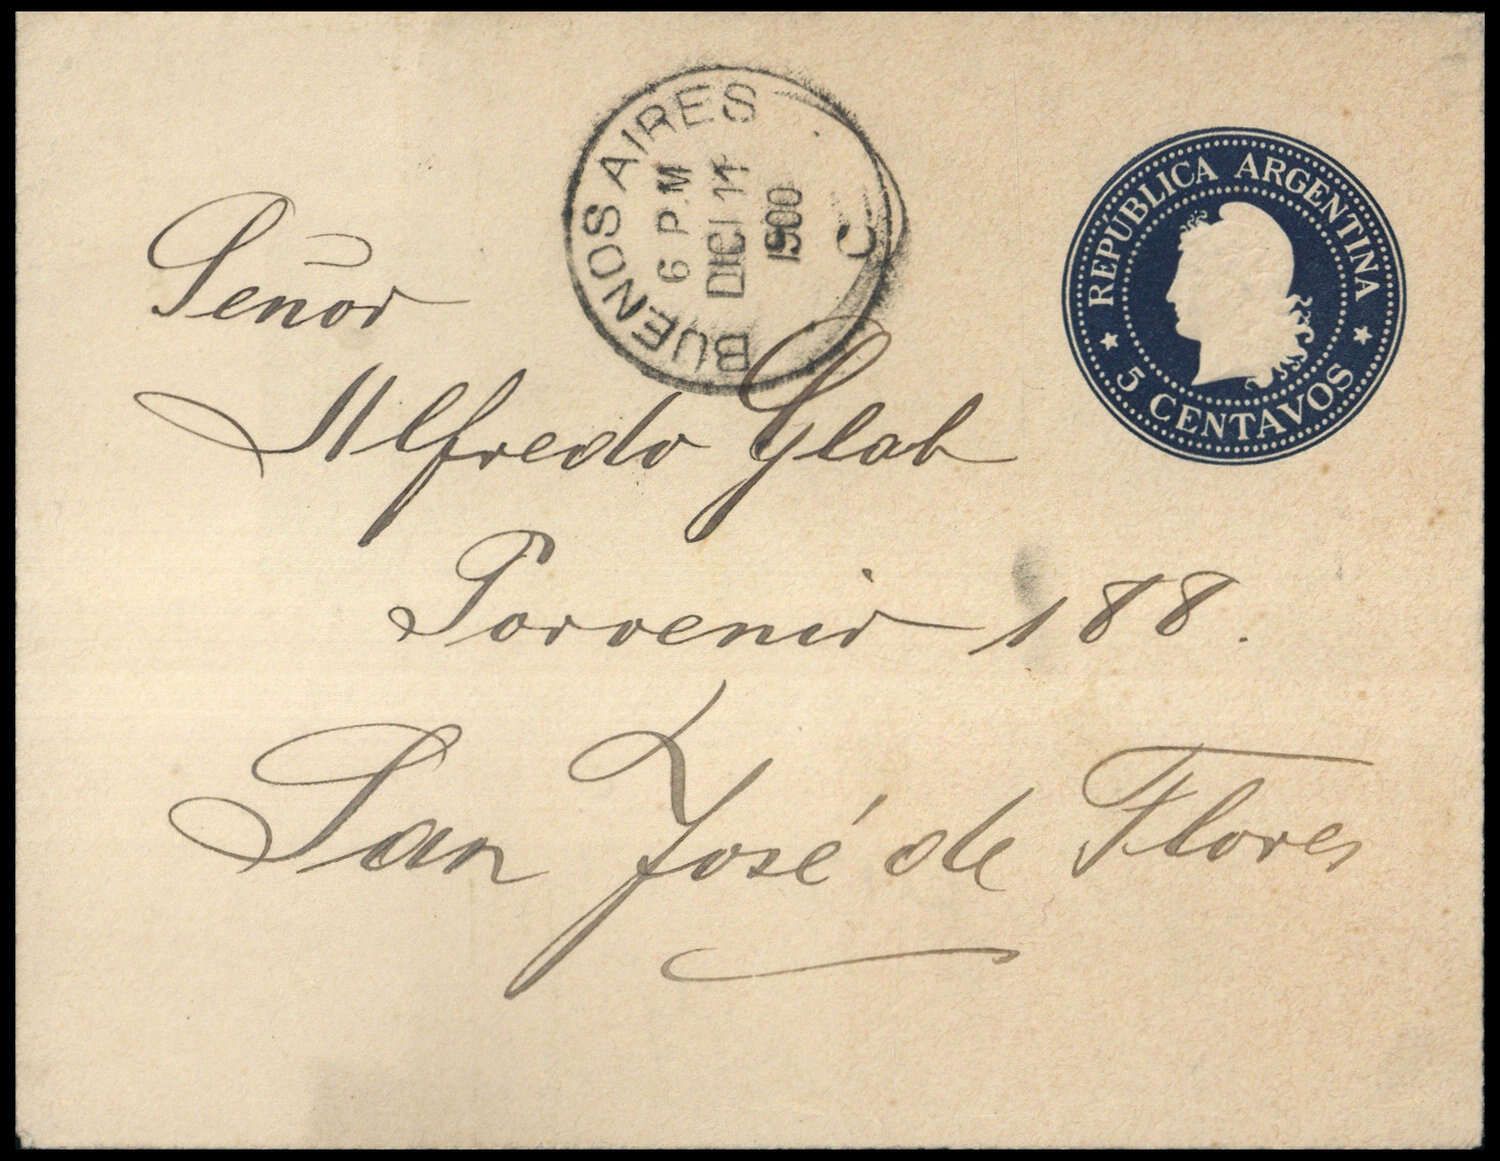 BUENOS AIRES
6 P.M
DICI 11
1900
C
REPUBLICA ARGENTINA
5 CENTAVOS
Señor
Alfredo Glab
Porvenir 188.
San José de Flores